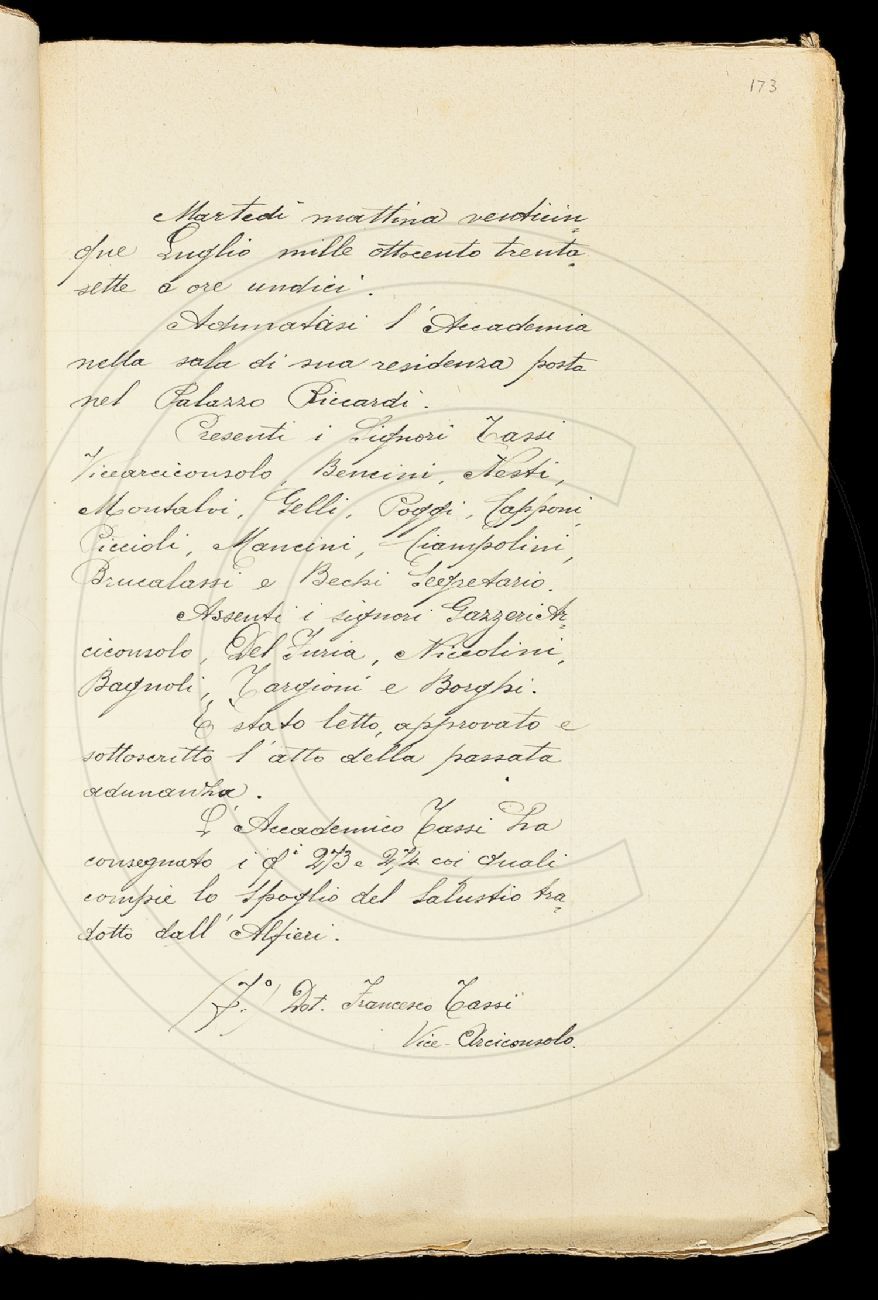 173
Martedì mattina venticin=
que Luglio mille ottocento trenta=
sette a ore undici.
Adunatasi l'Accademia
nella sala di sua residenza posta
nel Palazzo Riccardi.
Presenti i Signori Tassi
Vicearciconsolo, Bencini, Nesti,
Montalvi, Gelli, Poggi, Capponi,
Piccioli, Mancini, Ciampolini,
Brucalassi e Bechi Segretario.
Assenti i signori Gazzeri Ar=
ciconsolo, Del Furia, Niccolini,
Bagnoli, Targioni e Borghi.
È stato letto, approvato e
sottoscritto l'atto della passata
adunanza.
L'Accademico Tassi ha
consegnato i qⁱ 273 e 274 coi quali
compie lo Spoglio del Salustio tra=
dotto dall'Alfieri.
(F.º) Dot. Francesco Tassi
Vice-Arciconsolo.